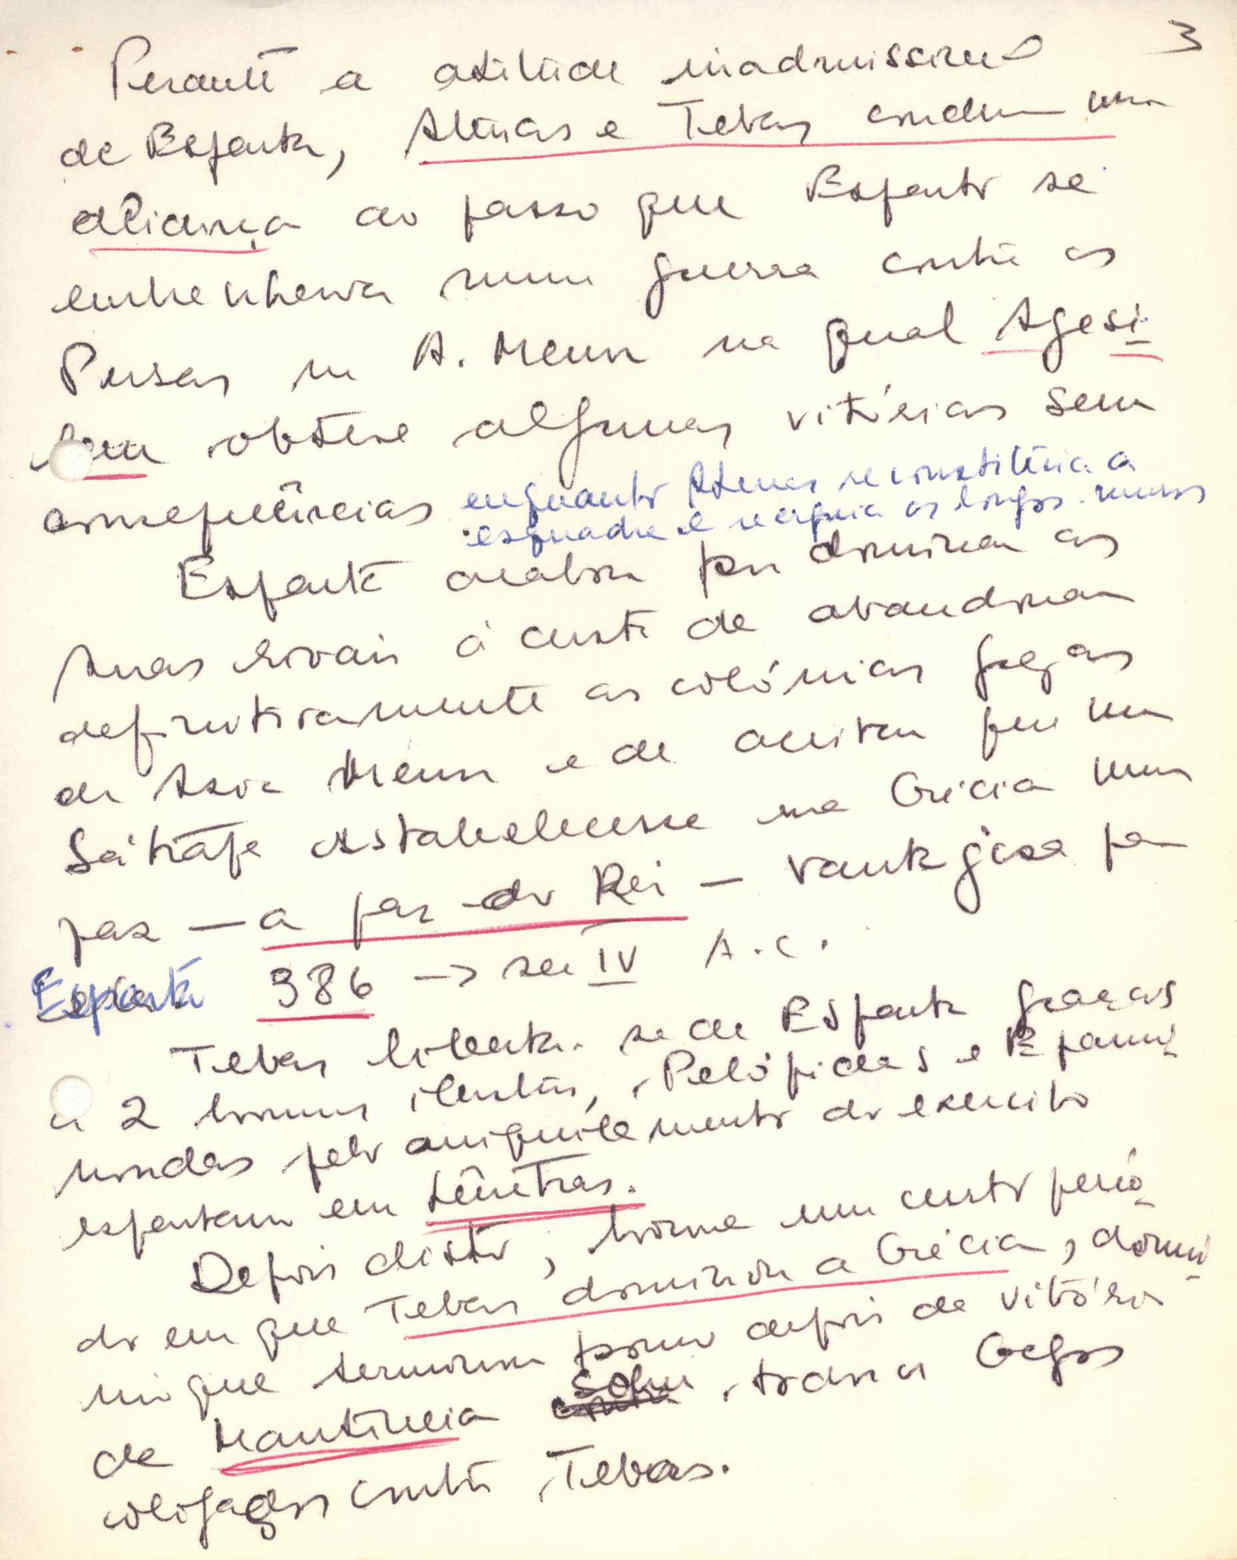 3
Perante a atitude inadmissivel
de Esparta, Atenas e Tebas concluem uma
aliança ao passo que Esparta se
embrenhava numa guerra contra os
Persas na A. Menor na qual Agesi-
lau obteve algumas vitórias sem
consequências enquanto Atenas reconstituia a
esquadra e reerguia os longos muros
Esparta acabou por dominar as
suas rivais à custa de abandonar
definitivamente as colónias gregas
da Asia Menor e de aceitar que um
Sátrapa estabelecesse na Grécia uma
paz — a paz do Rei — vantajosa para
Esparta 386 → sec IV A.C.
Tebas liberta-se de Esparta graças
a 2 homens ilustres, Pelópidas e Epami-
nondas pelo aniquilamento do exercito
espartano em Lêuctras.
Depois disto, houve um curto perío-
do em que Tebas dominou a Grécia, domí-
nio que terminou pouco depois da vitória
de Mantineia sobre todos os Gregos
coligados contra Tebas.